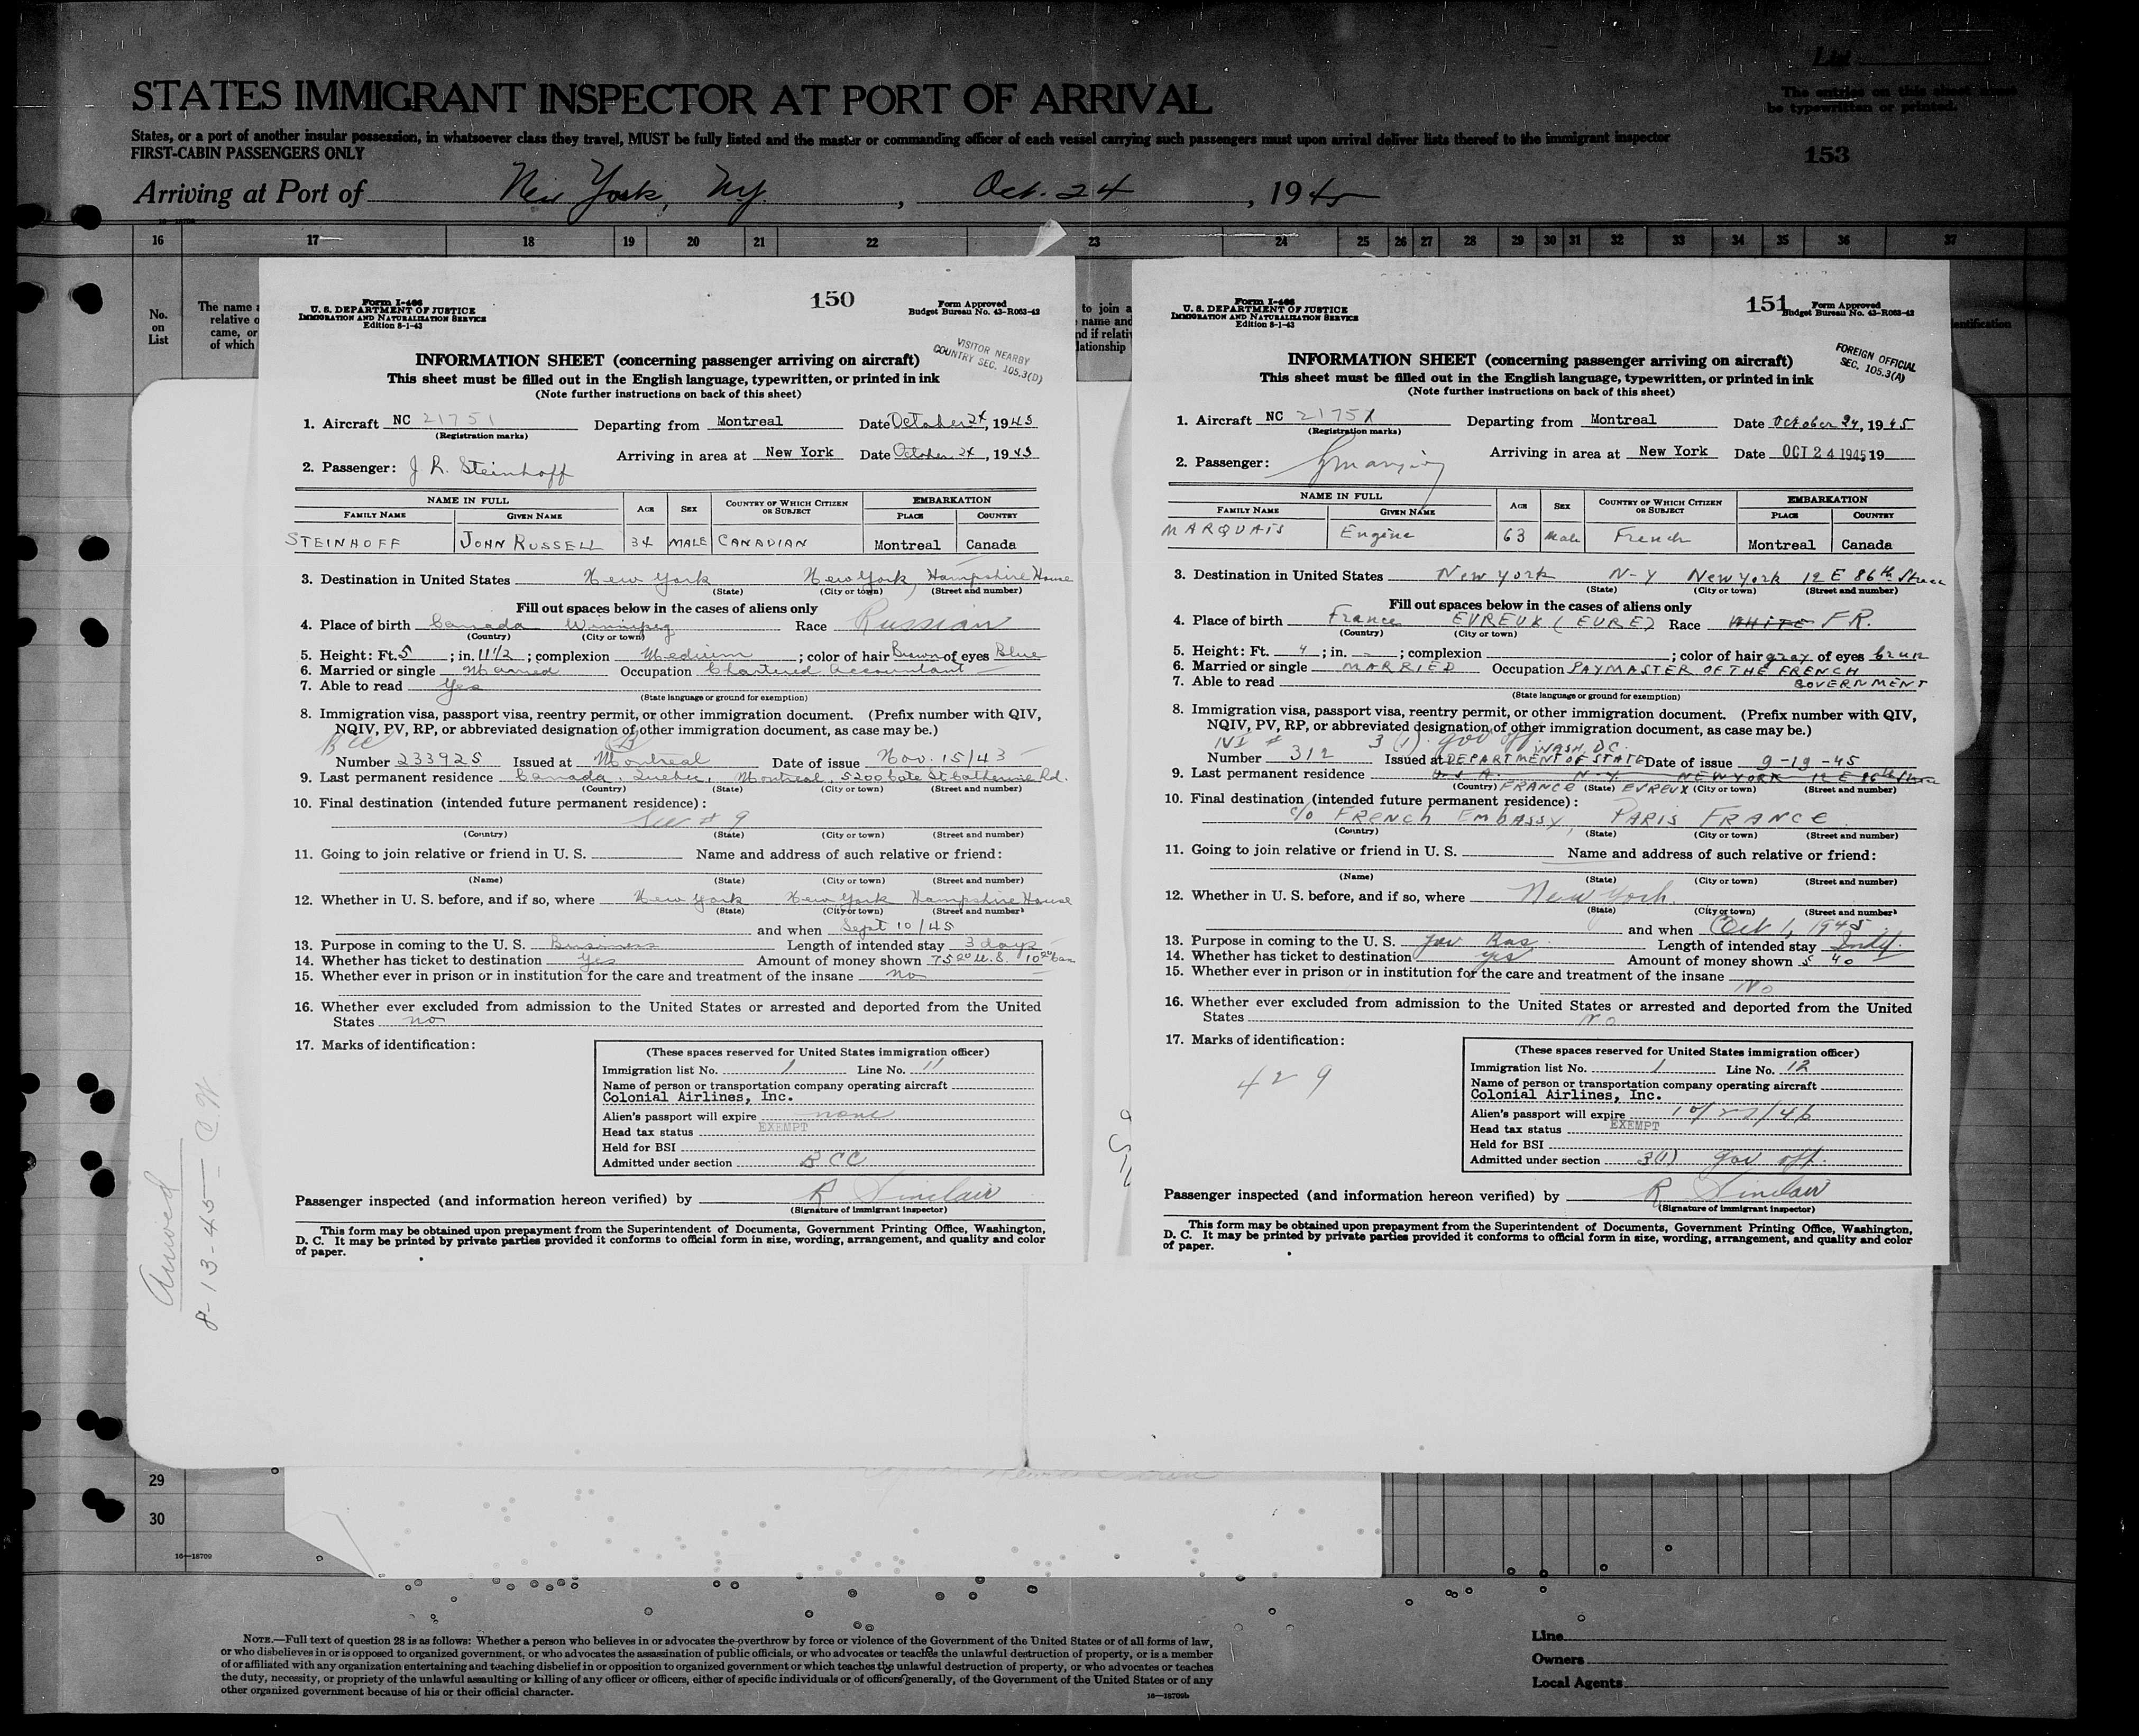 STATES IMMIGRANT INSPECTOR AT PORT OF ARRIVAL
The entries on this sheet must be typewritten or printed.
States, or a port of another insular possession, in whatsoever class they travel, MUST be fully listed and the master or commanding officer of each vessel carrying such passengers must upon arrival deliver lists thereof to the immigrant inspector
FIRST-CABIN PASSENGERS ONLY
153
Arriving at Port of New York, Ny., Oct. 24, 1945
16 17 18 19 20 21 22 23 24 25 26 27 28 29 30 31 32 33 34 35 36 37
No. on List
The name a
relative o
came, or
of which
to join a
name and
nd if relativ
lationship
entification
Form I-466
U. S. DEPARTMENT OF JUSTICE
IMMIGRATION AND NATURALIZATION SERVICE
Edition 8-1-43
150
Form Approved
Budget Bureau No. 43-R063-42
VISITOR NEARBY
COUNTRY SEC. 105.3(D)
INFORMATION SHEET (concerning passenger arriving on aircraft)
This sheet must be filled out in the English language, typewritten, or printed in ink
(Note further instructions on back of this sheet)
1. Aircraft NC 21751 Departing from Montreal Date October 24, 1945
(Registration marks)
Arriving in area at New York Date October 24, 1945
2. Passenger: J. R. Steinhoff
NAME IN FULL AGE SEX COUNTRY OF WHICH CITIZEN OR SUBJECT EMBARKATION
FAMILY NAME GIVEN NAME PLACE COUNTRY
STEINHOFF JOHN RUSSELL 34 MALE CANADIAN Montreal Canada
3. Destination in United States New York New York, Hampshire House
(State) (City or town) (Street and number)
Fill out spaces below in the cases of aliens only
4. Place of birth Canada Winnipeg Race Russian
(Country) (City or town)
5. Height: Ft. 5; in. 11 1/2; complexion Medium; color of hair Brown of eyes Blue
6. Married or single Married Occupation Chartered Accountant
7. Able to read Yes
(State language or ground for exemption)
8. Immigration visa, passport visa, reentry permit, or other immigration document. (Prefix number with QIV,
NQIV, PV, RP, or abbreviated designation of other immigration document, as case may be.)
Number 233925 Issued at Montreal Date of issue Nov. 15/43
9. Last permanent residence Canada, Quebec, Montreal, 5200 Cote St Catherine Rd.
(Country) (State) (City or town) (Street and number)
10. Final destination (intended future permanent residence):
See # 9
(Country) (State) (City or town) (Street and number)
11. Going to join relative or friend in U. S. Name and address of such relative or friend:
(Name) (State) (City or town) (Street and number)
12. Whether in U. S. before, and if so, where New York New York Hampshire House
(State) (City or town) (Street and number)
and when Sept 10/45
13. Purpose in coming to the U. S. Business Length of intended stay 3 days
14. Whether has ticket to destination Yes Amount of money shown 75.00 U.S. 10.00 Can
15. Whether ever in prison or in institution for the care and treatment of the insane no
16. Whether ever excluded from admission to the United States or arrested and deported from the United
States no
17. Marks of identification:
(These spaces reserved for United States immigration officer)
Immigration list No. 1 Line No. 11
Name of person or transportation company operating aircraft
Colonial Airlines, Inc.
Alien's passport will expire none
Head tax status EXEMPT
Held for BSI
Admitted under section BCC
Passenger inspected (and information hereon verified) by R Sinclair
(Signature of immigrant inspector)
This form may be obtained upon prepayment from the Superintendent of Documents, Government Printing Office, Washington,
D. C. It may be printed by private parties provided it conforms to official form in size, wording, arrangement, and quality and color
of paper.
Form I-466
U. S. DEPARTMENT OF JUSTICE
IMMIGRATION AND NATURALIZATION SERVICE
Edition 8-1-43
151
Form Approved
Budget Bureau No. 43-R063-42
FOREIGN OFFICIAL
SEC. 105.3(A)
INFORMATION SHEET (concerning passenger arriving on aircraft)
This sheet must be filled out in the English language, typewritten, or printed in ink
(Note further instructions on back of this sheet)
1. Aircraft NC 21751 Departing from Montreal Date October 24, 1945
(Registration marks)
Arriving in area at New York Date OCT 24 1945 19
2. Passenger:
NAME IN FULL AGE SEX COUNTRY OF WHICH CITIZEN OR SUBJECT EMBARKATION
FAMILY NAME GIVEN NAME PLACE COUNTRY
MARQUAIS Engène 63 Male French Montreal Canada
3. Destination in United States New York N-Y New York 12 E 86th Street
(State) (City or town) (Street and number)
Fill out spaces below in the cases of aliens only
4. Place of birth France EVREUX (EURE) Race WHITE FR.
(Country) (City or town)
5. Height: Ft. 4; in. -; complexion ; color of hair gray of eyes brun
6. Married or single MARRIED Occupation PAYMASTER OF THE FRENCH
7. Able to read GOVERNMENT
(State language or ground for exemption)
8. Immigration visa, passport visa, reentry permit, or other immigration document. (Prefix number with QIV,
NQIV, PV, RP, or abbreviated designation of other immigration document, as case may be.)
3 (1) gov off. WASH. D.C.
Number 312 Issued at DEPARTMENT OF STATE Date of issue 9-19-45
9. Last permanent residence U.S.A. N-Y. NEW YORK 12 E 86th Street
(Country) FRANCE (State) EVREUX (City or town) (Street and number)
10. Final destination (intended future permanent residence):
c/o FRENCH EMBASSY, PARIS FRANCE
(Country) (State) (City or town) (Street and number)
11. Going to join relative or friend in U. S. Name and address of such relative or friend:
(Name) (State) (City or town) (Street and number)
12. Whether in U. S. before, and if so, where New York.
(State) (City or town) (Street and number)
and when Oct 1, 1945
13. Purpose in coming to the U. S. Gov Bus. Length of intended stay Indef.
14. Whether has ticket to destination yes Amount of money shown $ 40
15. Whether ever in prison or in institution for the care and treatment of the insane
No
16. Whether ever excluded from admission to the United States or arrested and deported from the United
States No
17. Marks of identification:
(These spaces reserved for United States immigration officer)
Immigration list No. 1 Line No. 12
Name of person or transportation company operating aircraft
Colonial Airlines, Inc.
Alien's passport will expire
Head tax status EXEMPT
Held for BSI
Admitted under section 3(1) gov off.
Passenger inspected (and information hereon verified) by R Sinclair
(Signature of immigrant inspector)
This form may be obtained upon prepayment from the Superintendent of Documents, Government Printing Office, Washington,
D. C. It may be printed by private parties provided it conforms to official form in size, wording, arrangement, and quality and color
of paper.
8-13-45 - C.W.
29
30
16-18709
NOTE.—Full text of question 28 is as follows: Whether a person who believes in or advocates the overthrow by force or violence of the Government of the United States or of all forms of law,
or who disbelieves in or is opposed to organized government, or who advocates the assassination of public officials, or who advocates or teaches the unlawful destruction of property, or is a member
of or affiliated with any organization entertaining and teaching disbelief in or opposition to organized government or which teaches the unlawful destruction of property, or who advocates or teaches
the duty, necessity, or propriety of the unlawful assaulting or killing of any officer or officers, either of specific individuals or of officers generally, of the Government of the United States or of any
other organized government because of his or their official character.
16-18709b
Line
Owners
Local Agents